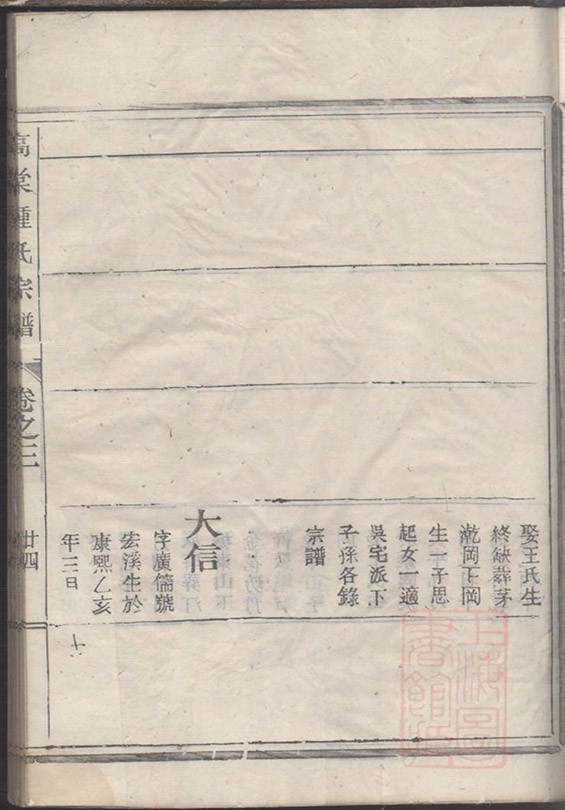 娶王氏生
終缺葬茅
乾岡下岡
生一子思
起女一適
吳宅派下
子孫各錄
宗譜
大信
字廣儒號
宏溪生於
康熙乙亥
年三日
十
高棠鍾氏宗譜
卷之三
廿四
上海圖書館藏